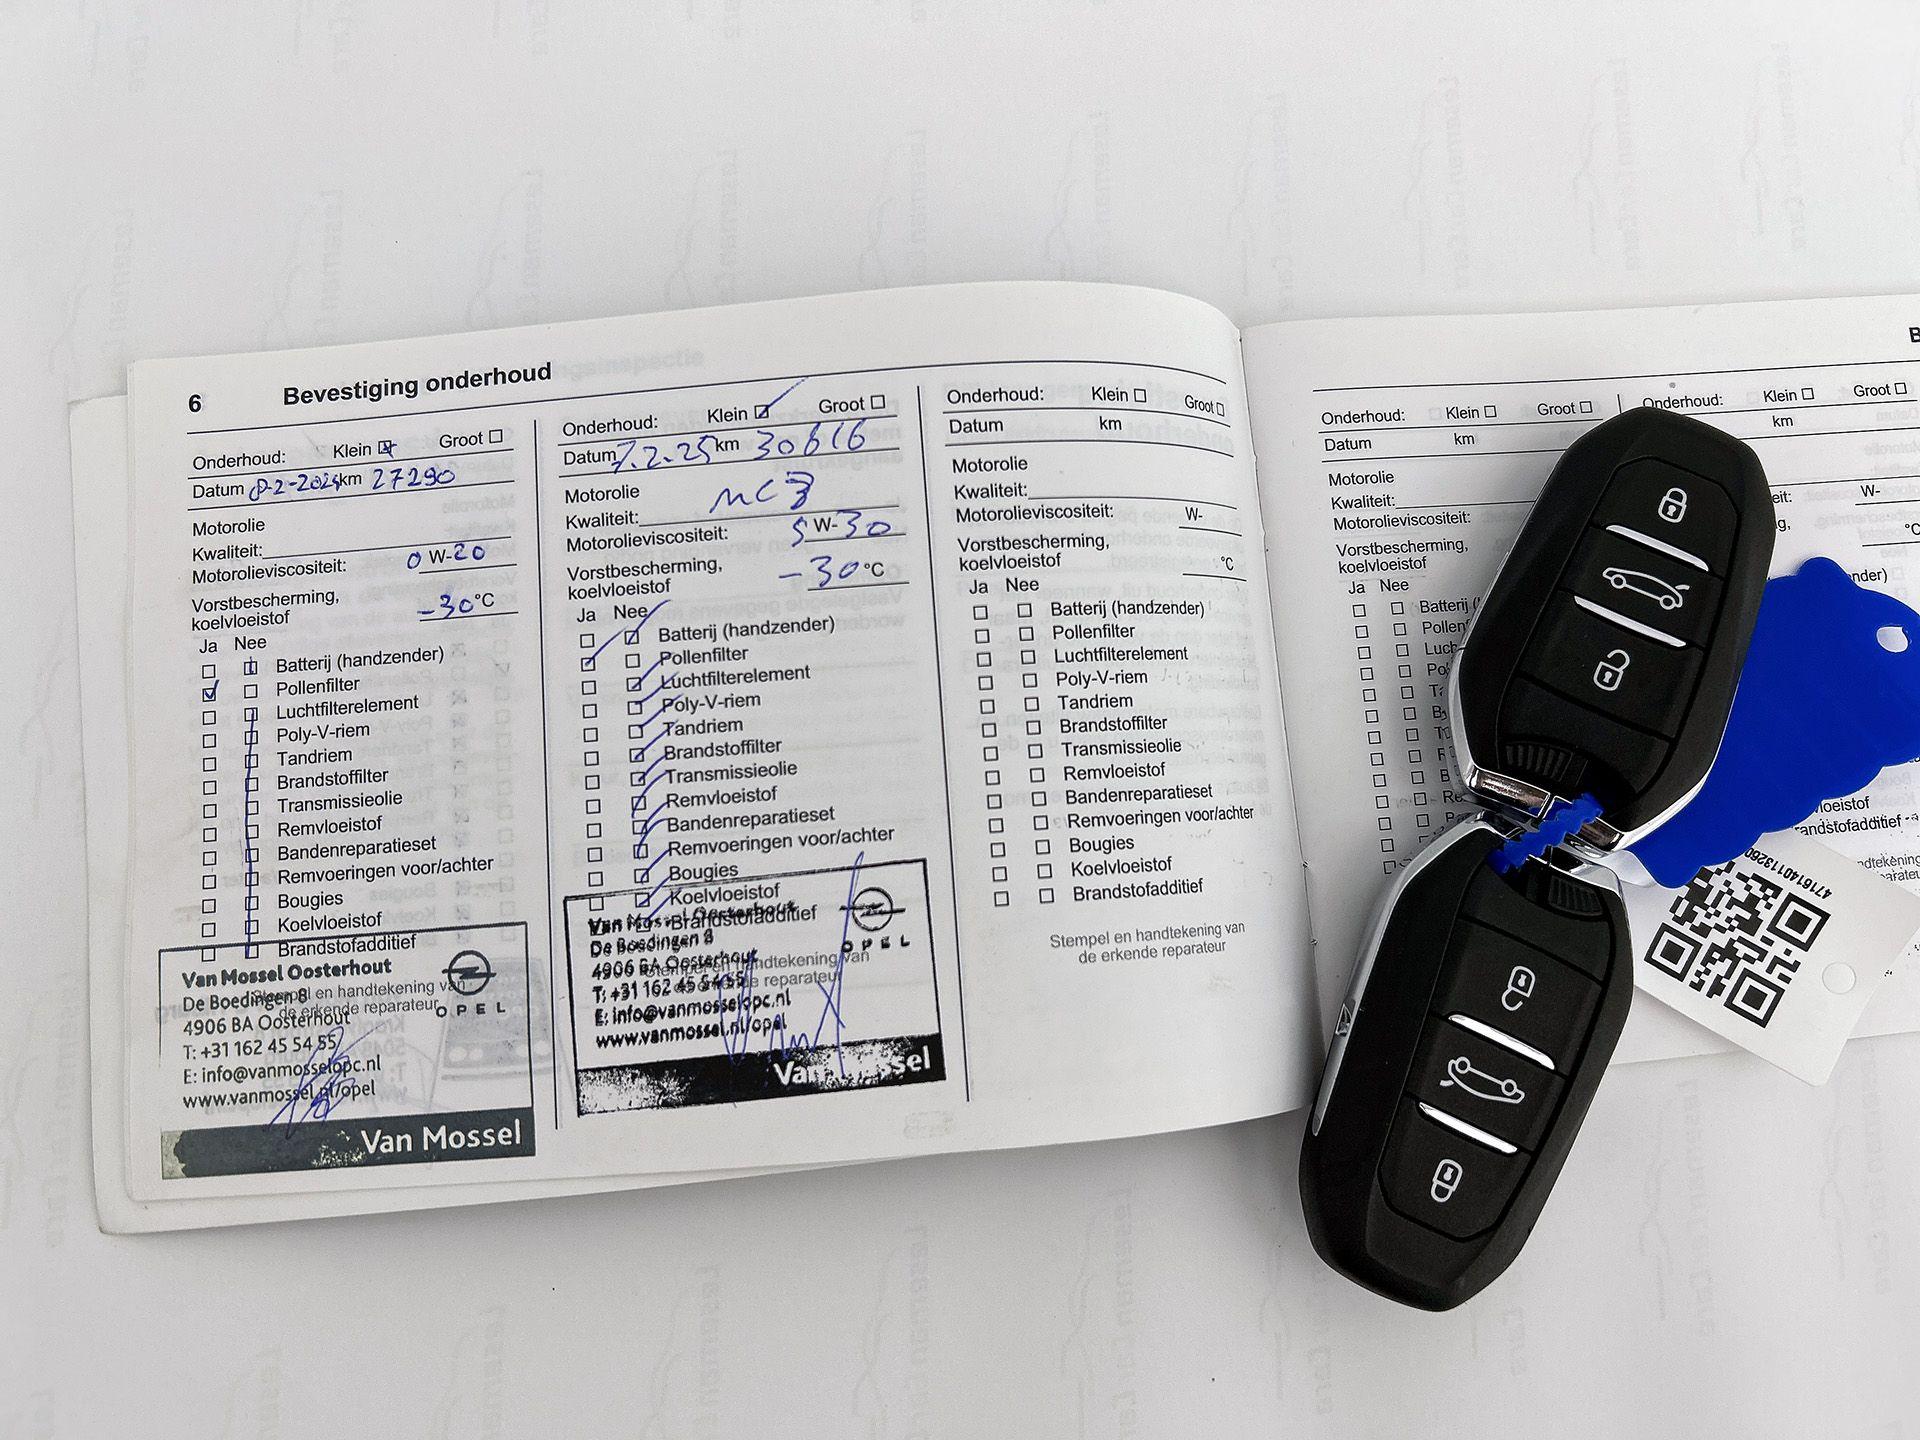 6 Bevestiging onderhoud
Onderhoud: Klein Groot
Datum 8-2-2024 km 27290
Motorolie
Kwaliteit:
Motorolieviscositeit: 0 W-20
Vorstbescherming,
koelvloeistof -30 °C
Ja Nee
Batterij (handzender)
Pollenfilter
Luchtfilterelement
Poly-V-riem
Tandriem
Brandstoffilter
Transmissieolie
Remvloeistof
Bandenreparatieset
Remvoeringen voor/achter
Bougies
Koelvloeistof
Brandstofadditief
Stempel en handtekening van
de erkende reparateur
Van Mossel Oosterhout
De Boedingen 8
4906 BA Oosterhout
T: +31 162 45 54 55
E: info@vanmosselopc.nl
www.vanmossel.nl/opel
OPEL
Van Mossel
Onderhoud: Klein Groot
Datum 7.2.25 km 30616
Motorolie
Kwaliteit:
Motorolieviscositeit: 5 W-30
Vorstbescherming,
koelvloeistof -30 °C
Ja Nee
Batterij (handzender)
Pollenfilter
Luchtfilterelement
Poly-V-riem
Tandriem
Brandstoffilter
Transmissieolie
Remvloeistof
Bandenreparatieset
Remvoeringen voor/achter
Bougies
Koelvloeistof
Brandstofadditief
Stempel en handtekening van
de erkende reparateur
Van Mossel Oosterhout
De Boedingen 8
4906 BA Oosterhout
T: +31 162 45 54 55
E: info@vanmosselopc.nl
www.vanmossel.nl/opel
OPEL
Van Mossel
Onderhoud: Klein Groot
Datum km
Motorolie
Kwaliteit:
Motorolieviscositeit: W-
Vorstbescherming,
koelvloeistof °C
Ja Nee
Batterij (handzender)
Pollenfilter
Luchtfilterelement
Poly-V-riem
Tandriem
Brandstoffilter
Transmissieolie
Remvloeistof
Bandenreparatieset
Remvoeringen voor/achter
Bougies
Koelvloeistof
Brandstofadditief
Stempel en handtekening van
de erkende reparateur
Onderhoud: Klein Groot
Datum km
Motorolie
Kwaliteit:
Motorolieviscositeit:
Vorstbescherming,
koelvloeistof
Ja Nee
Onderhoud: Klein Groot
km
W-
°C